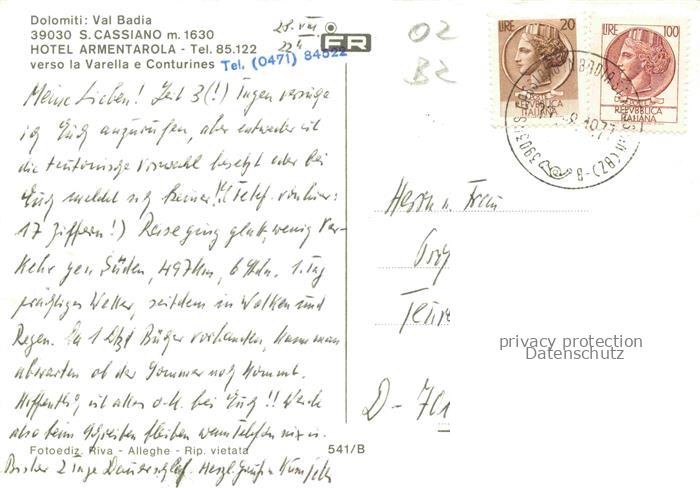 Dolomiti: Val Badia
39030 S. CASSIANO m. 1630
HOTEL ARMENTAROLA - Tel. 85.122
verso la Varella e Conturines
Tel. (0471) 84522
FR
02
BZ
LIRE 20
REPVBBLICA
ITALIANA
LIRE 100
REPVBBLICA
ITALIANA
39030
(BZ) - B
Meine Lieben! Seit 3 (!) Tagen versuche
ich Euch anzurufen, aber entweder ist
die teutonische Vorwahl besetzt oder bei
Euch meldet sich keiner!! (Telef. von hier:
17 Ziffern!) Reise ging glatt, wenig Ver-
kehr gen Süden, 497 km, 6 Stdn. 1. Tag
prächtiges Wetter, seitdem in Wolken und
Regen. Da 1 Bücher vorhanden, kann man
abwarten ob der Sommer noch kommt.
Hoffentlich ist alles o.k. bei Euch!! Werde
also beim Schreiben bleiben wenn Telefon nix is.
Bisher 2 Tage Dauerschlaf. Herzl. Gruß
Herrn u. Frau
D - 701
privacy protection
Datenschutz
Fotoediz. Riva - Alleghe - Rip. vietata
541/B